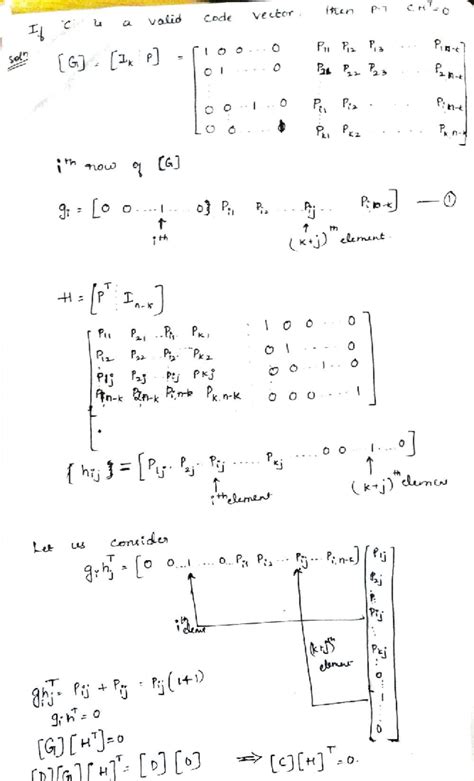 If C is a valid code vector. then P.T C.Hᵀ=0
soln
[G] = [Iₖ P] = [1 0 0 ... 0 P₁₁ P₁₂ P₁₃ ... P₁ₙ₋ₖ
0 1 ... 0 P₂₁ P₂₂ P₂₃ ... P₂ₙ₋ₖ
0 0 ..1.. 0 Pᵢ₁ Pᵢ₂ .. Pᵢₙ₋ₖ
0 0 ... 0 Pₖ₁ Pₖ₂ ... Pₖ ₙ₋ₖ]
iᵗʰ row of [G]
gᵢ = [0 0 ...1... 0} Pᵢ₁ Pᵢ₂ .. Pᵢⱼ .. Pᵢₙ₋ₖ] — ①
↑ ↑
iᵗʰ (k+j)ᵗʰ element.
H = [Pᵀ : Iₙ₋ₖ]
[P₁₁ P₂₁ ..Pᵢ₁.. Pₖ₁ : 1 0 0 ... 0
P₁₂ P₂₂ .. Pᵢ₂.. Pₖ₂ : 0 1 ... 0
P₁ⱼ P₂ⱼ .. Pᵢⱼ Pₖⱼ : 0 0 ..1.. 0
P₁ₙ₋ₖ P₂ₙ₋ₖ Pᵢₙ₋ₖ Pₖ.ₙ₋ₖ 0 0 0 ... 1]
{hᵢⱼ} = [P₁ⱼ.. P₂ⱼ.. Pᵢⱼ ..... Pₖⱼ ... 0 0 ..1...0]
↑ ↑
iᵗʰ element (k+j)ᵗʰ
Let us consider
gᵢhⱼᵀ = [0 0..1 ... 0..Pᵢ₁ Pᵢ₂ ... Pᵢⱼ .. Pᵢ,ₙ₋ₖ] [P₁ⱼ
P₂ⱼ
Pᵢⱼ
Pₖⱼ
0
1
0]
iᵗʰ
(k+j)ᵗʰ
element
ghᵢⱼᵀ = Pᵢⱼ + Pᵢⱼ = Pᵢⱼ(1+1)
gᵢhᵀ = 0
[G][Hᵀ]=0
[D][G][H]ᵀ = [D][0] ⇒ [C][H]ᵀ=0.